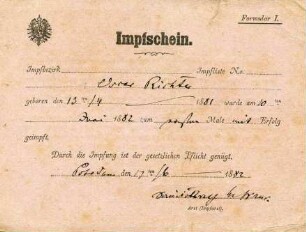 Formular I.
Impfschein.
Impfbezirk Impfliste No.
Richter
geboren den 13 ten /4 1881 wurde am 10 ten
Juni 1882 zum ersten Male mit Erfolg
geimpft.
Durch die Impfung ist der gesetzlichen Pflicht genügt.
Potsdam den 17 ten /6 1882
Arzt (Impfarzt).